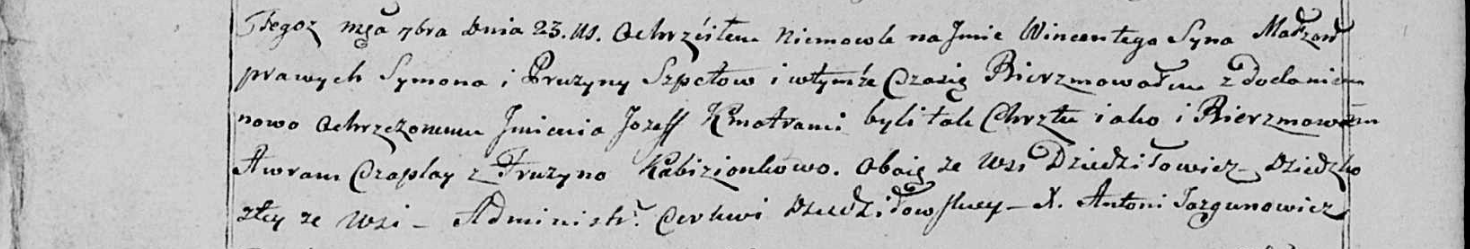 Tegoż męca 7bra Dnia 23. us. Ochrzciłem Niemowle na Jmie Wincentego Syna Małżon
prawych Symona i Pruzyny Szpetow i wtymże Czasię Bierzmowałem z dodaniem
nowo Ochrzczonemu Jmienia Jozeff Kmotrami byli tak Chrztu iako i Bierzmowan
Awram Czaplay z Fruzyno Kabizionkowo. Oboie ze Wsi Dziedziłowicz
ze Wsi – Administr. Cerkwi Dziedziłowskiey – X. Antoni Jazgunowicz